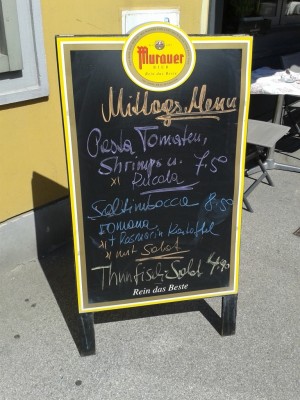 Murauer
BIER
Rein das Beste
Mittags Menu
Pasta Tomaten,
Shrimps u. 7.50
Rucola
Saltimbocca 8.50
romana
+ Rosmarin Kartoffel
mit Salat
Thunfisch Salat 4.90
Rein das Beste